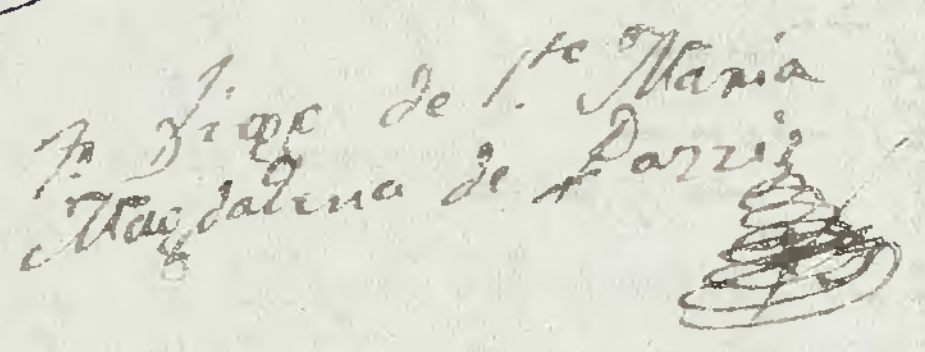 Fr Diego de Ste Maria
Magdalena de Pazzis